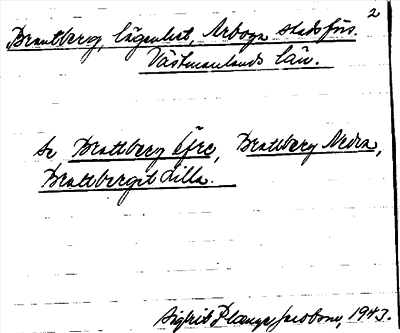 2
Brattberg, lägenhet, Arboga stadsförs.
Västmanlands län.
Se, Brattberg Öfre, Brattberg Nedra,
Brattberget Lilla.
Sigfrid Jacobson, 1943.